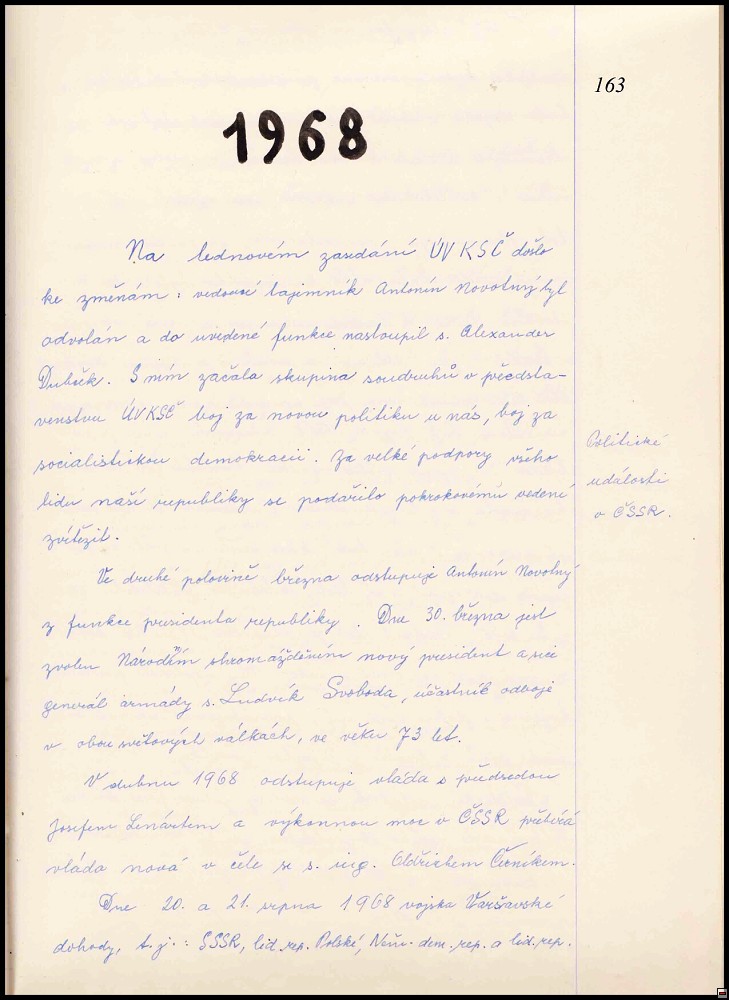 163
1968
Na lednovém zasedání ÚV KSČ došlo
ke změnám : vedoucí tajemník Antonín Novotný byl
odvolán a do uvedené funkce nastoupil s. Alexander
Dubček. S ním začala skupina soudruhů v předsta-
venstvu ÚV KSČ boj za novou politiku u nás, boj za
socialistickou demokracii. Za velké podpory všeho
lidu naší republiky se podařilo pokrokovému vedení
zvítězit.
Politické
události
v ČSSR.
Ve druhé polovině března odstupuje Antonín Novotný
z funkce presidenta republiky. Dne 30. března jest
zvolen Národním shromážděním nový president a sice
generál armády s. Ludvík Svoboda, účastník odboje
v obou světových válkách, ve věku 73 let.
V dubnu 1968 odstupuje vláda s předsedou
Josefem Lenártem a výkonnou moc v ČSSR přebírá
vláda nová v čele se s. ing. Oldřichem Černíkem.
Dne 20. a 21. srpna 1968 vojska Varšavské
dohody, t.j.: SSSR, lid. rep. Polské, Něm. dem. rep. a lid. rep.